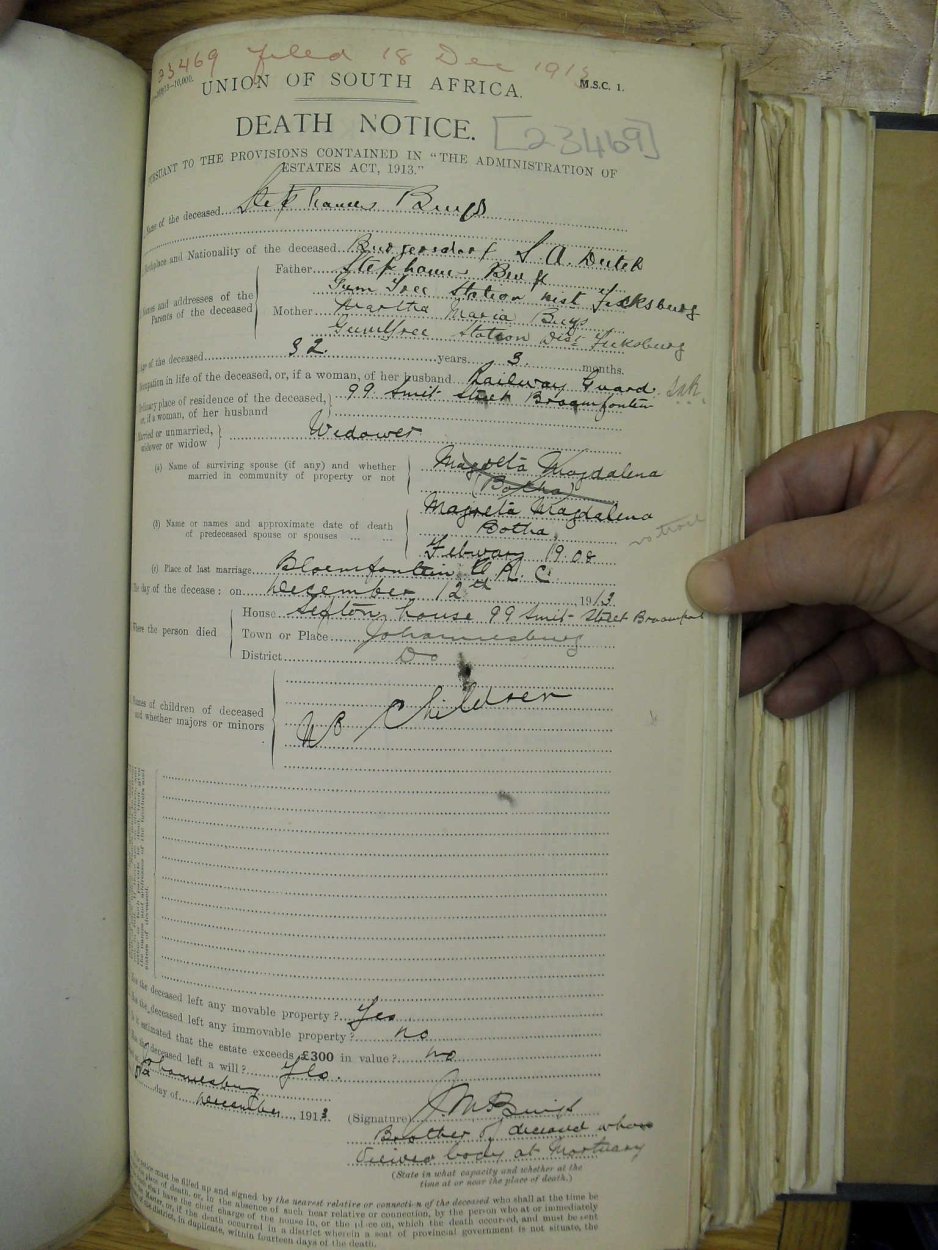 23469 filed 18 Dec 1913
M.S.C. 1.
UNION OF SOUTH AFRICA.
DEATH NOTICE. [23469]
PURSUANT TO THE PROVISIONS CONTAINED IN "THE ADMINISTRATION OF
ESTATES ACT, 1913."
Name of the deceased Stephanus Buys
Birthplace and Nationality of the deceased Burgersdorf S. A. Dutch
Names and addresses of the Parents of the deceased
Father Stephanus Buys
Gum Tree Station Dist Ficksburg
Mother Martha Maria Buys
Gumtree Station Dist Ficksburg
Age of the deceased 32 years 3 months.
Occupation in life of the deceased, or, if a woman, of her husband Railway Guard. SAR
Ordinary place of residence of the deceased, or, if a woman, of her husband 99 Smit Street Braamfontein
Married or unmarried, widower or widow Widower
(a) Name of surviving spouse (if any) and whether married in community of property or not Magreta Magdalena
(Botha)
(b) Name or names and approximate date of death of predeceased spouse or spouses Magreta Magdalena
Botha,
February 1908
(c) Place of last marriage Bloemfontein O. R. C.
The day of the decease: on December 12th, 1913
Where the person died
House Sefton house 99 Smit Street Braamfont
Town or Place Johannesburg
District Do
Names of children of deceased and whether majors or minors
No Children
Has the deceased left any movable property? Yes
Has the deceased left any immovable property? no
Is it estimated that the estate exceeds £300 in value? no
Has the deceased left a will? Yes.
Johannesburg
day of December, 1913.
(Signature)
Brother of deceased whom
viewed body at Mortuary
(State in what capacity and whether at the
time at or near the place of death.)
notice must be filled up and signed by the nearest relative or connection of the deceased who shall at the time be
place of death, or, in the absence of such near relative or connection, by the person who at or immediately
shall have the chief charge of the house in, or the place on, which the death occurred, and must be sent
Master, or, if the death occurred in a district wherein a seat of provincial government is not situate, the
of the district, in duplicate, within fourteen days of the death.